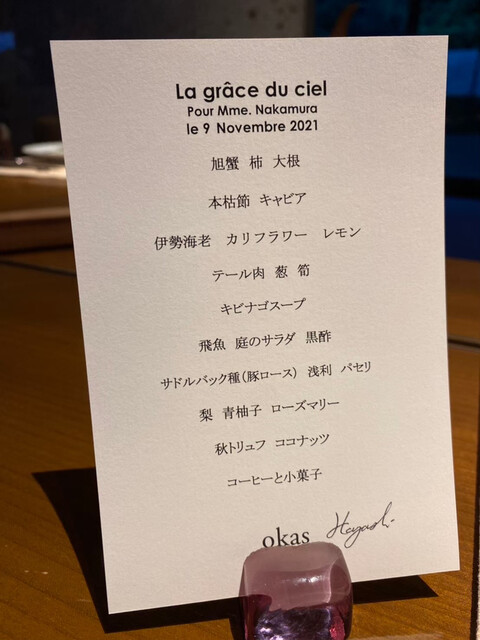 La grâce du ciel
Pour Mme. Nakamura
le 9 Novembre 2021
旭蟹 柿 大根
本枯節 キャビア
伊勢海老 カリフラワー レモン
テール肉 葱 筍
キビナゴスープ
飛魚 庭のサラダ 黒酢
サドルバック種(豚ロース) 浅利 パセリ
梨 青柚子 ローズマリー
秋トリュフ ココナッツ
コーヒーと小菓子
okas Hayashi